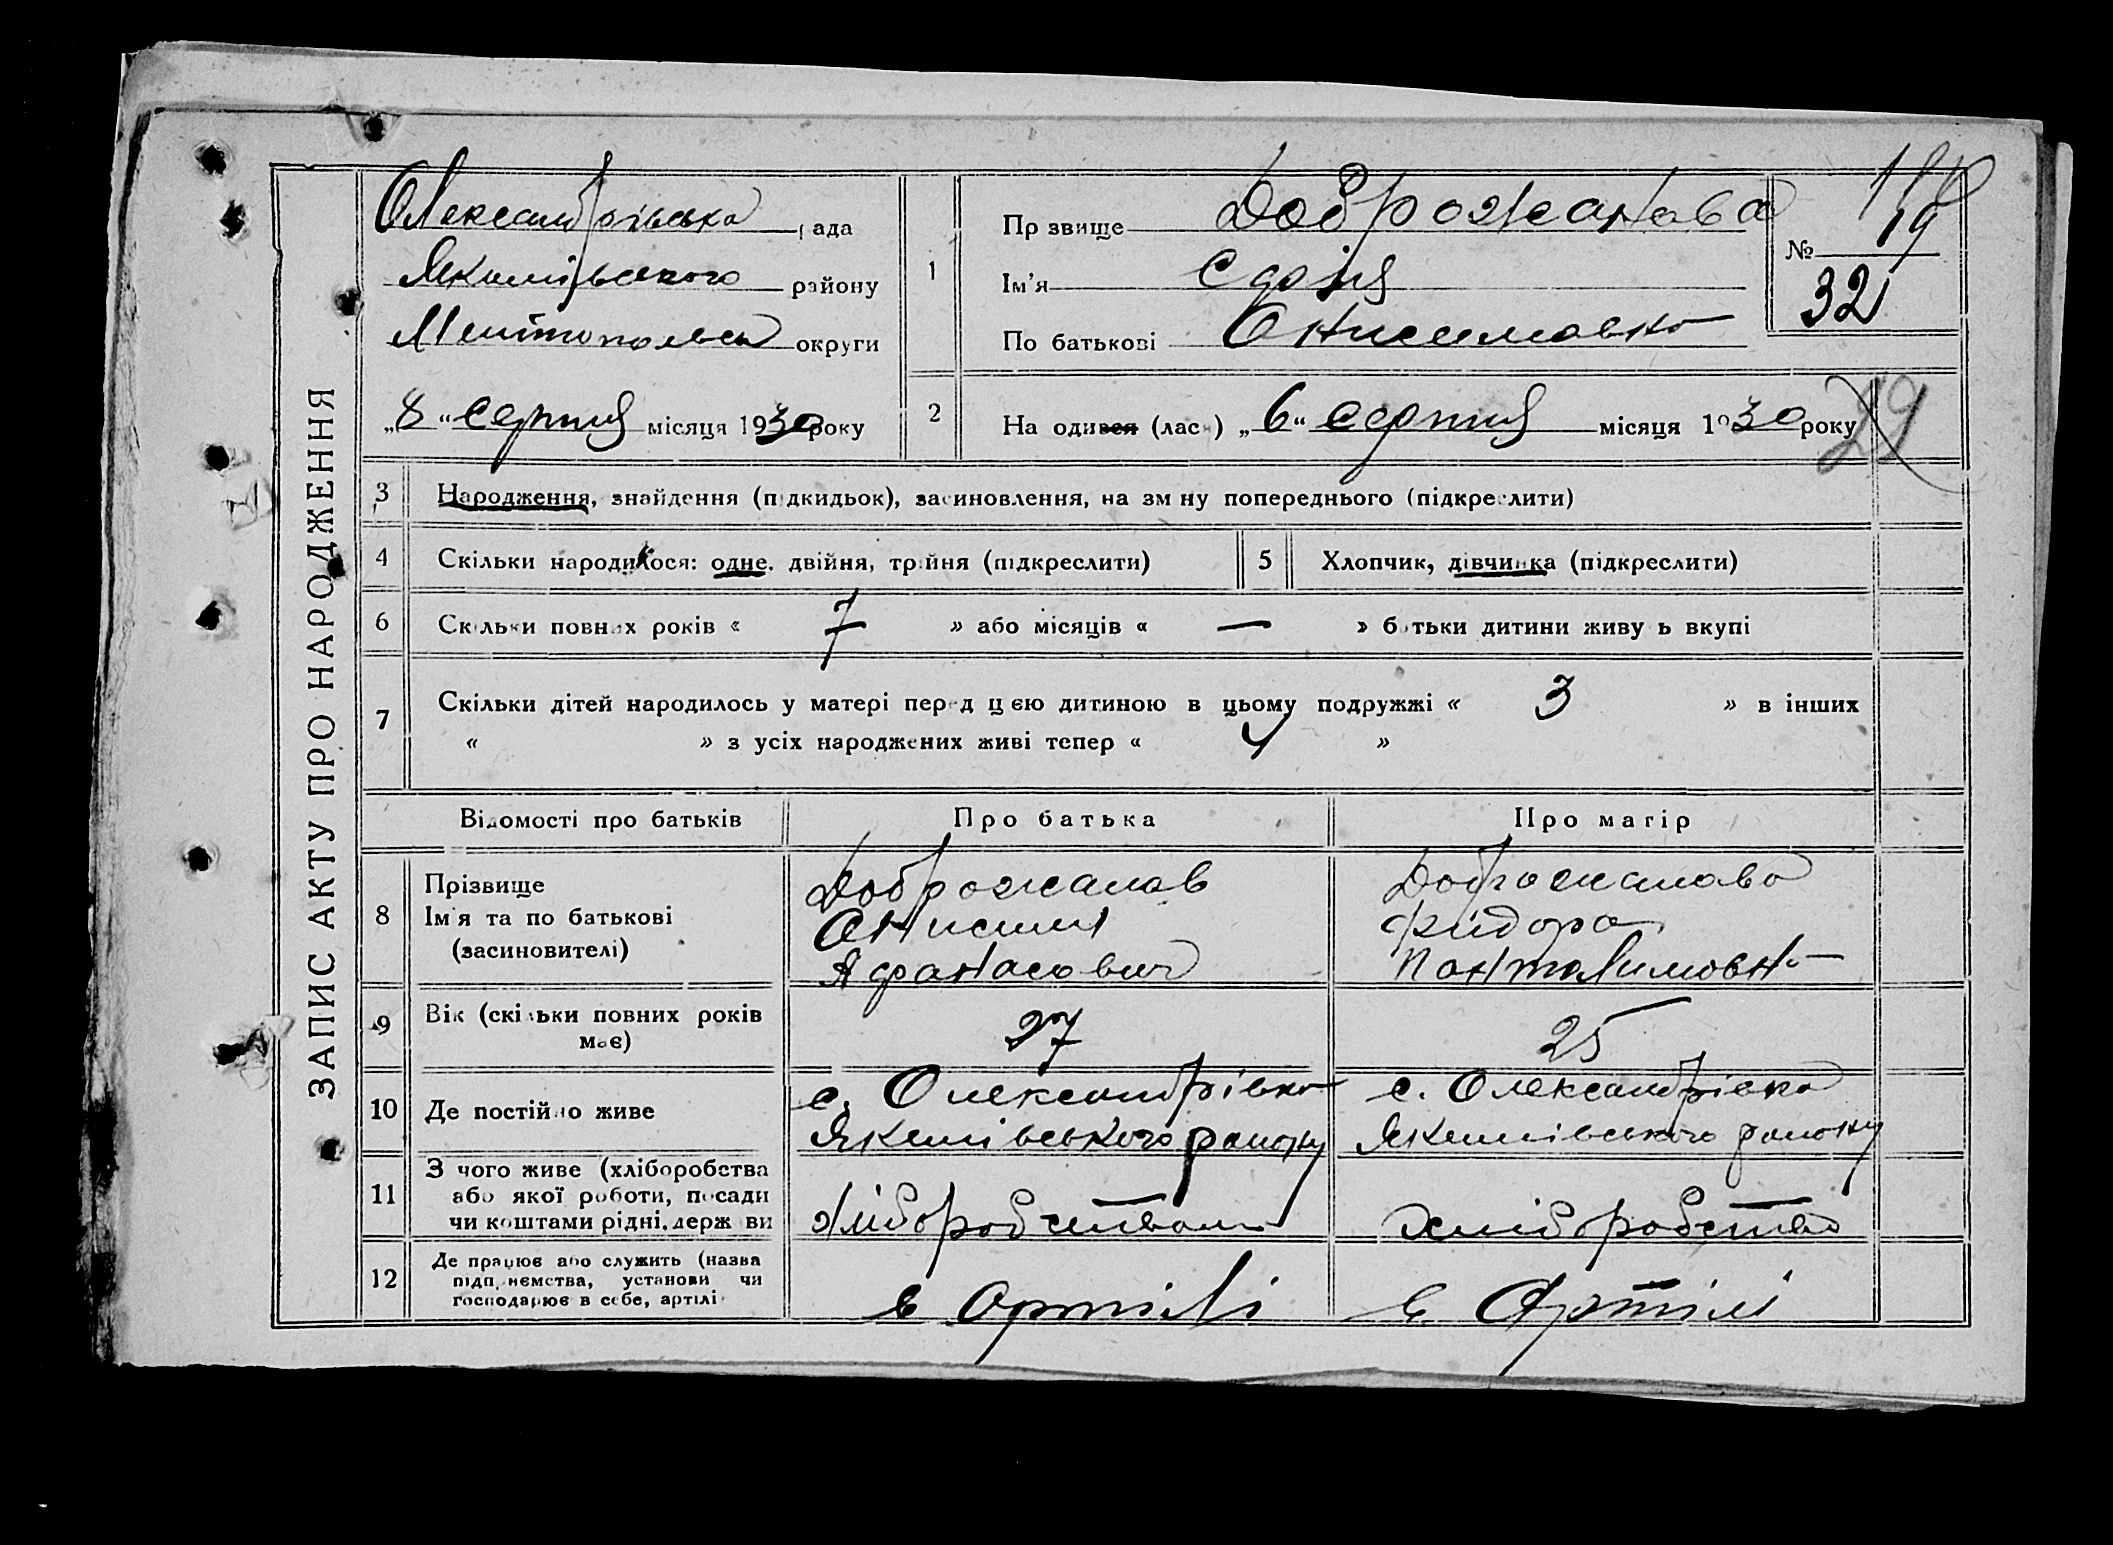 ЗАПИС АКТУ ПРО НАРОДЖЕННЯ
Олександрівська рада
Якимівського району
Мелітопольсь округи
„8“ серпня місяця 1930 року
1
Прізвище Доброжанова
Ім'я Софія
По батькові Онисимовна
№ 19
32
29
2 На одився (лась) „6“ серпня місяця 1930 року
3 Народження, знайдення (підкидьок), засиновлення, на зміну попереднього (підкреслити)
4 Скільки народилося: одне, двійня, тройня (підкреслити)
5 Хлопчик, дівчинка (підкреслити)
6 Скільки повних років « 7 » або місяців « — » батьки дитини живуть вкупі
7 Скільки дітей народилось у матері перед цією дитиною в цьому подружжі « 3 » в інших
« » з усіх народжених живі тепер « 4 »
Відомості про батьків Про батька Про матір
8 Прізвище
Ім'я та по батькові
(засиновителі)
Доброжанов
Онисим
Афанасович
Доброжанова
Фидора
Понталимовна
9 Вік (скільки повних років
має)
27
25
10 Де постійно живе
с. Олександрівка
Якимівського району
с. Олександрівка
Якимівського району
11 З чого живе (хліборобства
або якої роботи, посади
чи коштами рідні, держ ви
хліборобством
хліборобство
12 Де працює або служить (назва
підприємства, установи чи
господарює в себе, артілі
в артілі
в Артілі